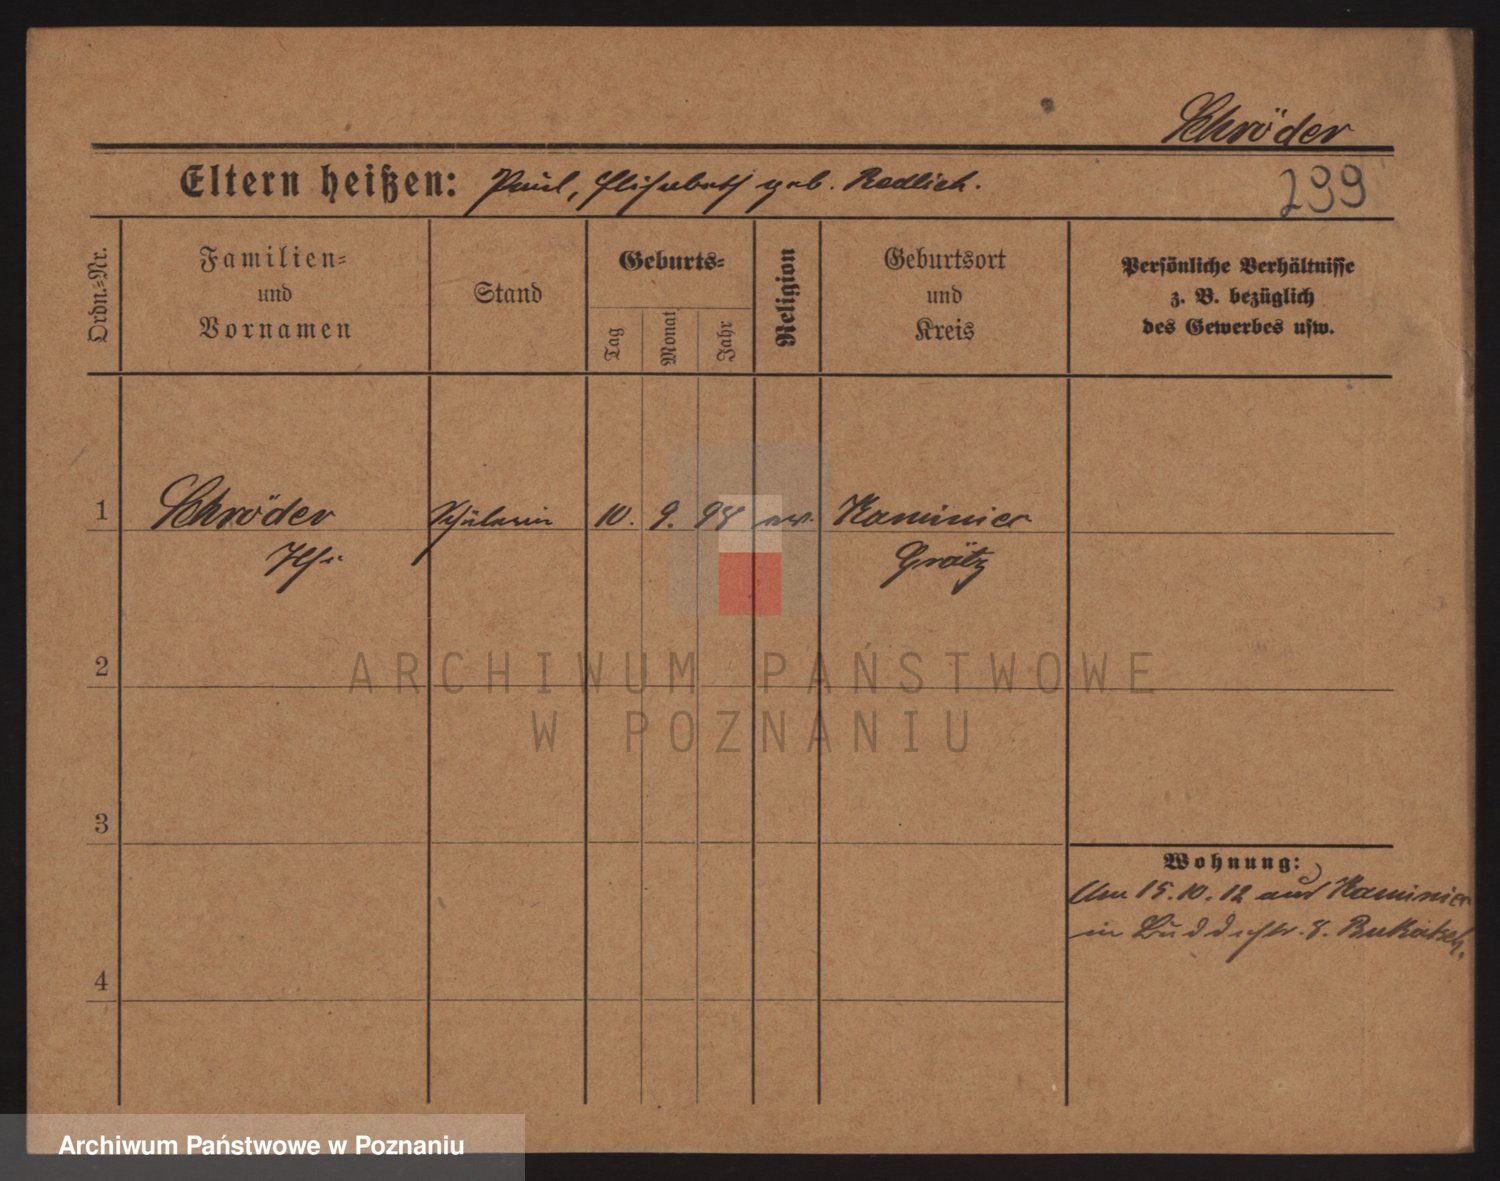 Schröder
Eltern heißen: Paul, Elisabeth geb. Redlich.
299
Ordn.-Nr.
Familien-
und
Vornamen
Stand
Geburts-
Tag
Monat
Jahr
Religion
Geburtsort
und
Kreis
Persönliche Verhältnisse
z. B. bezüglich
des Gewerbes usw.
1 Schröder Schülerin 10. 9. 98 ev. Kaminiec
Grätz
2
ARCHIWUM PAŃSTWOWE
W POZNANIU
3
Wohnung:
Am 15.10.12 aus Kaminiec
in 8.
4
Archiwum Państwowe w Poznaniu